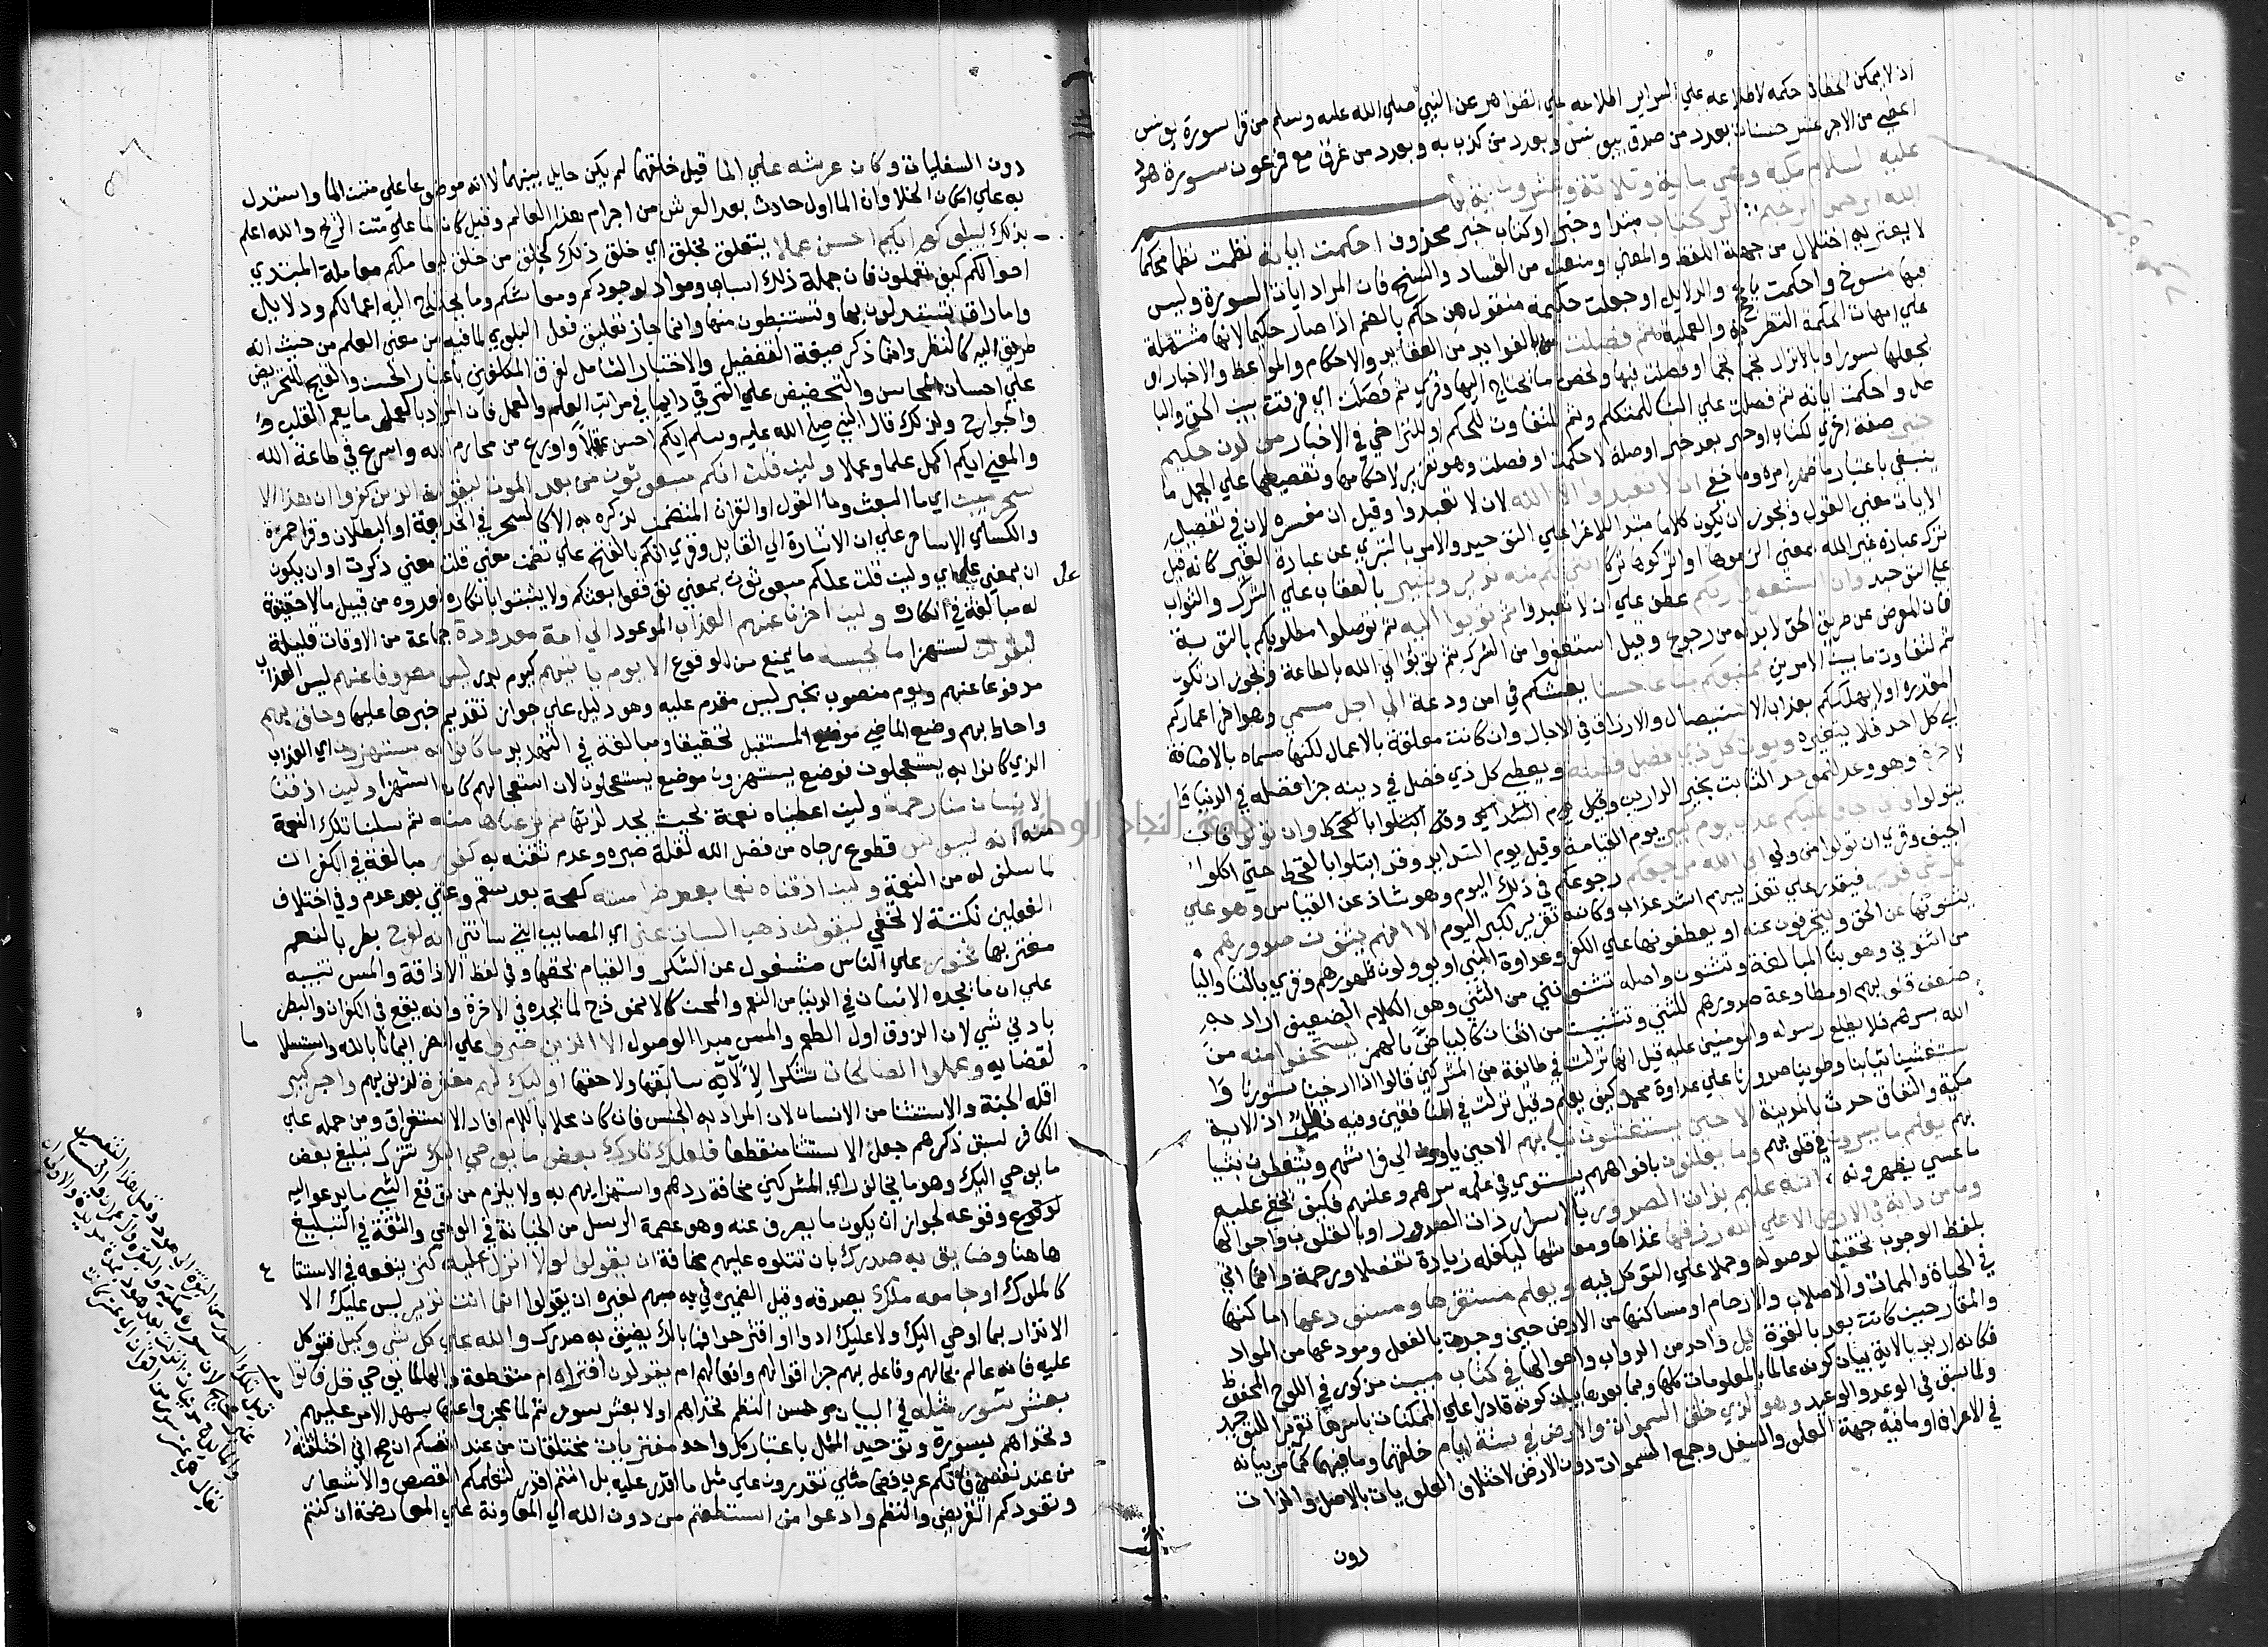 اذ لا يمكن الخطا في حكمه لاطلاعه علي السراير اطلاعه علي الظواهر عن النبي صلي الله عليه وسلم من قرا سورة يونس
اعطي من الاجر عشر حسنات بعدد من صدق بيونس وبعدد من كذب به وبعدد من غرق مع فرعون سورة هود
عليه السلام مكية وهي ماية وثلاثة وعشرون اية
الله الرحمن الرحيم الر كتاب مبتدا وخبر او كتاب خبر محذوف احكمت اياته نظمت نظما محكما
لا يعتريه اختلال من جهة اللفظ والمعني او منعت من الفساد والنسخ فان المراد ايات السورة وليس
فيها منسوخ او احكمت بالحجج والدلايل او جعلت حكيمة منقول من حكم بالضم اذا صار حكيما لانها مشتملة
علي امهات الحكمة النظرية والعملية ثم فصلت بالفوايد من العقايد والاحكام والمواعظ والاخبار او
بجعلها سورا او بالانزال نجما نجما او فصلت فيها ولخص ما يحتاج اليها وقري ثم فصلت اي فرقت بين الحق والبا
طل واحكمت اياته ثم فصلت علي البنا للمتكلم وثم للتفاوت للحكم او للتراخي في الاخبار من لدن حكيم
خبير صفة اخري لكتاب او خبر بعد خبر او صلة لاحكمت او فصلت وهو تقرير لاحكامها وتفصيلها علي اكمل ما
ينبغي باعتبار ما ظهر امره وما خفي ان لا تعبدوا الا الله لان لا تعبدوا وقيل ان مفسره لان في تفصيل
الايات معني القول ويجوز ان يكون كلاما مبتدا للاغرا علي التوحيد والامر بالتبري عن عبادة الغير كانه قيل
ترك عبادة غير الله بمعني الزموها او اتركوها تركا انني لكم منه نذير وبشير بالعقاب علي الشرك والثواب
علي التوحيد وان استغفروا ربكم عطف علي ان لا تعبدوا ثم توبوا اليه ثم توصلوا مطلوبكم بالتوبة
فان المعرض عن طريق الحق لا بد له من رجوع وقيل استغفروا من الشرك ثم توبوا الي الله بالطاعة ويجوز ان تكون
ثم لتفاوت ما بين الامرين يمتعكم متاعا حسنا يعيشكم في امن ودعة الي اجل مسمي وهو اخر اعماركم
المقدرة او لا يهلككم بعذاب الاستيصال والارزاق في الاجال وان كانت معلقة بالاعمال لكنها مسماه بالاضافة
الي كل احد فلا يتغيره ويوت كل ذي فضل فضله ويعطي كل ذي فضل في دينه جزا فضله في الدنيا وا
لاخرة وهو وعد للموحد الثابت بخير الدارين وقيل يوم الشدايد وقد ابتلوا بالقحط وان تولوا وان
يتولوا فاني اخاف عليكم عذاب يوم كبير يوم القيامة وقيل يوم الشدايد وقد ابتلوا بالقحط حتي اكلوا
الجيف وقري ان تولوا من ولي الي الله مرجعكم رجوعكم في ذلك اليوم وهو شاذ عن القياس وهو علي
كل شي قدير فيقدر علي تعذيبهم اشد عذاب وكانه تقرير لكبر اليوم الا انهم يثنون صدورهم
يثنونها عن الحق وينحرفون عنه او يعطفونها علي الكفر وعداوة النبي او يولون ظهورهم وقري بالتا واليا
من اثنوني وهو بنا المبالغة وتثنون واصله تثنونن من الثني وهو الكلام الضعيف اراد به
ضعف قلوبهم او مطاوعة صدورهم للثني وتثنيت من اثنان كابياض بالهمز ليستخفوا منه من
الله بسرهم فلا يطلع رسوله والمومنين عليه قيل انها نزلت في طايفة من المشركين قالوا اذا ارخينا ستورنا وا
ستغشينا ثيابنا وطوينا صدورنا علي عداوة محمد كيف يعلم وقيل نزلت في المنافقين وفيه نظر اذ الاية
مكية والنفاق حدث بالمدينة الا حين يستغشون ثيابهم الا حين ياوون الي فراشهم ويتغطون بثيا
بهم يعلم ما يسرون في قلوبهم وما يعلنون بافواههم يستوي في علمه سرهم وعلنهم فكيف يخفي عليه
ما عسي يظهرونه انه عليم بذات الصدور بالاسرار ذات الصدور او بالقلوب واحوالها
وما من دابة في الارض الا علي الله رزقها غذاها ومعاشها لتكفله زيادة تفضلا ورحمة وانما اتي
بلفظ الوجوب تحقيقا لوصوله وحملا علي التوكل فيه ويعلم مستقرها ومستودعها اماكنها
في الحياة والممات والاصلاب والارحام او مساكنها من الارض حين وجدت بالفعل ومودعها من المواد
والمقار حين كانت بعد بالقوة كل كل واحد من الدواب واحوالها في كتاب مبين مذكور في اللوح المحفوظ
فكانه اريد بالاية بيان كونه عالما بالمعلومات كلها وبما بعدها بيان كونه قادرا علي الممكنات باسرها تقريرا للتوحيد
ولما سبق في الوعد والوعيد وهو الذي خلق السموات والارض في ستة ايام خلقهما وما فيهما كما مر بيانه
في الاعراف او ما فيه جهة العلو والسفل وجمع السموات دون الارض لاختلاف العلويات بالاصل والذات
دون
دون السفليات وكان عرشه علي الما قيل خلقهما لم يكن حايل بينهما لا انه موضوعا علي متن الما واستدل
به علي امكان الخلا وان الما اول حادث بعد العرش من اجرام هذا العالم وقيل كان الما علي متن الريح والله اعلم
بذلك ليبلوكم ايكم احسن عملا يتعلق بخلق اي خلق ذلك كخلق من خلق ليعاملكم معاملة المبتلي
احوالكم كيف تعملون فان جملة ذلك اسباب ومواد لوجودكم ومعاشكم وما يحتاج اليه اعمالكم ودلايل
وامارات تستدلون بها وتستنبطون منها وانما جاز تعليق فعل البلوي لما فيه من معني العلم من حيث انه
طريق اليه كالنظر وانما ذكر صيغة التفضيل والاختبار الشامل لفرق المكلفين باعتبار الحسن والقبح للتحريض
علي احسان المحاسن والتحضيض علي الترقي دايما في مراتب العلم والعمل فان المراد بالعمل ما يعم القلب و
والجوارح ولذلك قال النبي صلي الله عليه وسلم ايكم احسن عقلا واورع من محارم الله واسرع في طاعة الله
والمعني ايكم اكمل علما وعملا ولين قلت انكم مبعوثون من بعد الموت ليقولن الذين كفروا ان هذا الا
سحر مبين اي ما البعث وما القول او القران المتضمن لذكره به الا كالسحر في الخديعة او البطلان وقرا حمزة
والكساي الا ساحر علي ان الاشارة الي القايل وقري انكم بالفتح علي تضمن معني قلت معني ذكرت او ان يكون
ان بمعني علي اي ولين قلت علكم مبعوثون بمعني توقعوا بعثكم ولا يثبتوا بانكاره لعدوه من قبيل ما لا حقيقة
عل
له مبالغة في انكاره ولين اخرنا عنهم العذاب الموعود الي امة معدودة جماعة من الاوقات قليلة
ليقولن استهزا ما يحبسه ما يمنع من الوقوع الا يوم ياتيهم كيوم بدر ليس مصروفا عنهم ليس العذاب
مدفوعا عنهم ويوم منصوب بخبر ليس مقدم عليه وهو دليل علي جواز تقديم خبرها عليها وحاق بهم
واحاط بهم وضع الماضي موضع المستقبل تحقيقا ومبالغة في التهديد ما كانوا به يستهزون اي العذاب
الذي كانوا به يستعجلون فوضع يستهزون موضع يستعجلون لان استعجالهم كان استهزا ولين اذقنا
الانسان منا رحمة ولين اعطيناه نعمة بحيث يجد لذتها ثم نزعناها منه ثم سلبنا تلك النعمة
منه انه ليوس قطوع رجاه من فضل الله لقلة صبره وعدم ثقته به كفور مبالغة في الكفران
لما سلف له من النعمة ولين اذقناه نعما بعد ضرا مسته كصحة بعد سقم وغني بعد عدم وفي اختلاف
الفعلين نكتة لا تخفي ليقولن ذهب السيات عني اي المصايب التي ساتني انه لفرح بطر بالنعم
مغتر بها فخور علي الناس مشغول عن الشكر والقيام بحقها وفي لفظ الاذاقة والمس تنبيه
علي ان ما يجده الانسان في الدنيا من النعم والمحن كالانموذج لما يجده في الاخرة وانه يقع في الكفران والبطر
بادني شي لان الذوق اول الطعم والمس مبدا الوصول الا الذين صبروا علي الضر ايمانا بالله واستسلا
ما
لقضايه وعملوا الصالحات شكرا لآلآيه سابقها ولاحقها اوليك لهم مغفرة لذنوبهم واجر كبير
اقله الجنة والاستثنا من الانسان لان المراد به الجنس فان كان محلا باللام افاد الاستغراق ومن حمله علي
الكافر لسبق ذكرهم جعل الاستثنا منقطعا فلعلك تارك بعض ما يوحي اليك تترك تبليغ بعض
ما يوحي اليك وهو ما يخالف راي المشركين مخافة ردهم واستهزايهم به ولا يلزم من توقع الشي ما يدعوا اليه
لوقوع وقوعه لجواز ان يكون ما يصرف عنه وهو عصمة الرسل من الخيانة في الوحي والثقة في التبليغ
هاهنا وضايق به صدرك بان تتلوه عليهم مخافة ان يقولوا لولا انزل عليه كنز ينفقه في الاستتبا
ع
كالملوك او جا معه ملك يصدقه وقيل الضمير في به مبهم تفسيره ان يقولوا انما انت نذير ليس عليك الا
الانذار بما اوحي اليك ولا عليك ردوا او اقترحوا فما بالك يضيق به صدرك والله علي كل شي وكيل فتوكل
عليه فانه عالم بحالهم وفاعل بهم جزا اقوالهم وافعالهم ام يقولون افتراه ام منقطعة والها لما يوحي قل فاتوا
بعشر سور مثله في البيان وحسن النظم تحداهم اولا بعشر سور ثم لما عجزوا عنها سهل الامر عليهم
وتحداهم بسورة وتوحيد المثل باعتبار كل واحد مفتريات مختلقات من عند انفسكم ان صح اني اختلقته
من عند نفسي فانكم عرب فصحا مثلي تقدرون علي مثل ما اقدر عليه بل انتم اقدر لتعلمكم القصص والاشعار
وتعودكم القريض والنظم وادعوا من استطعتم من دون الله الي المعاونة علي المعارضة ان كنتم